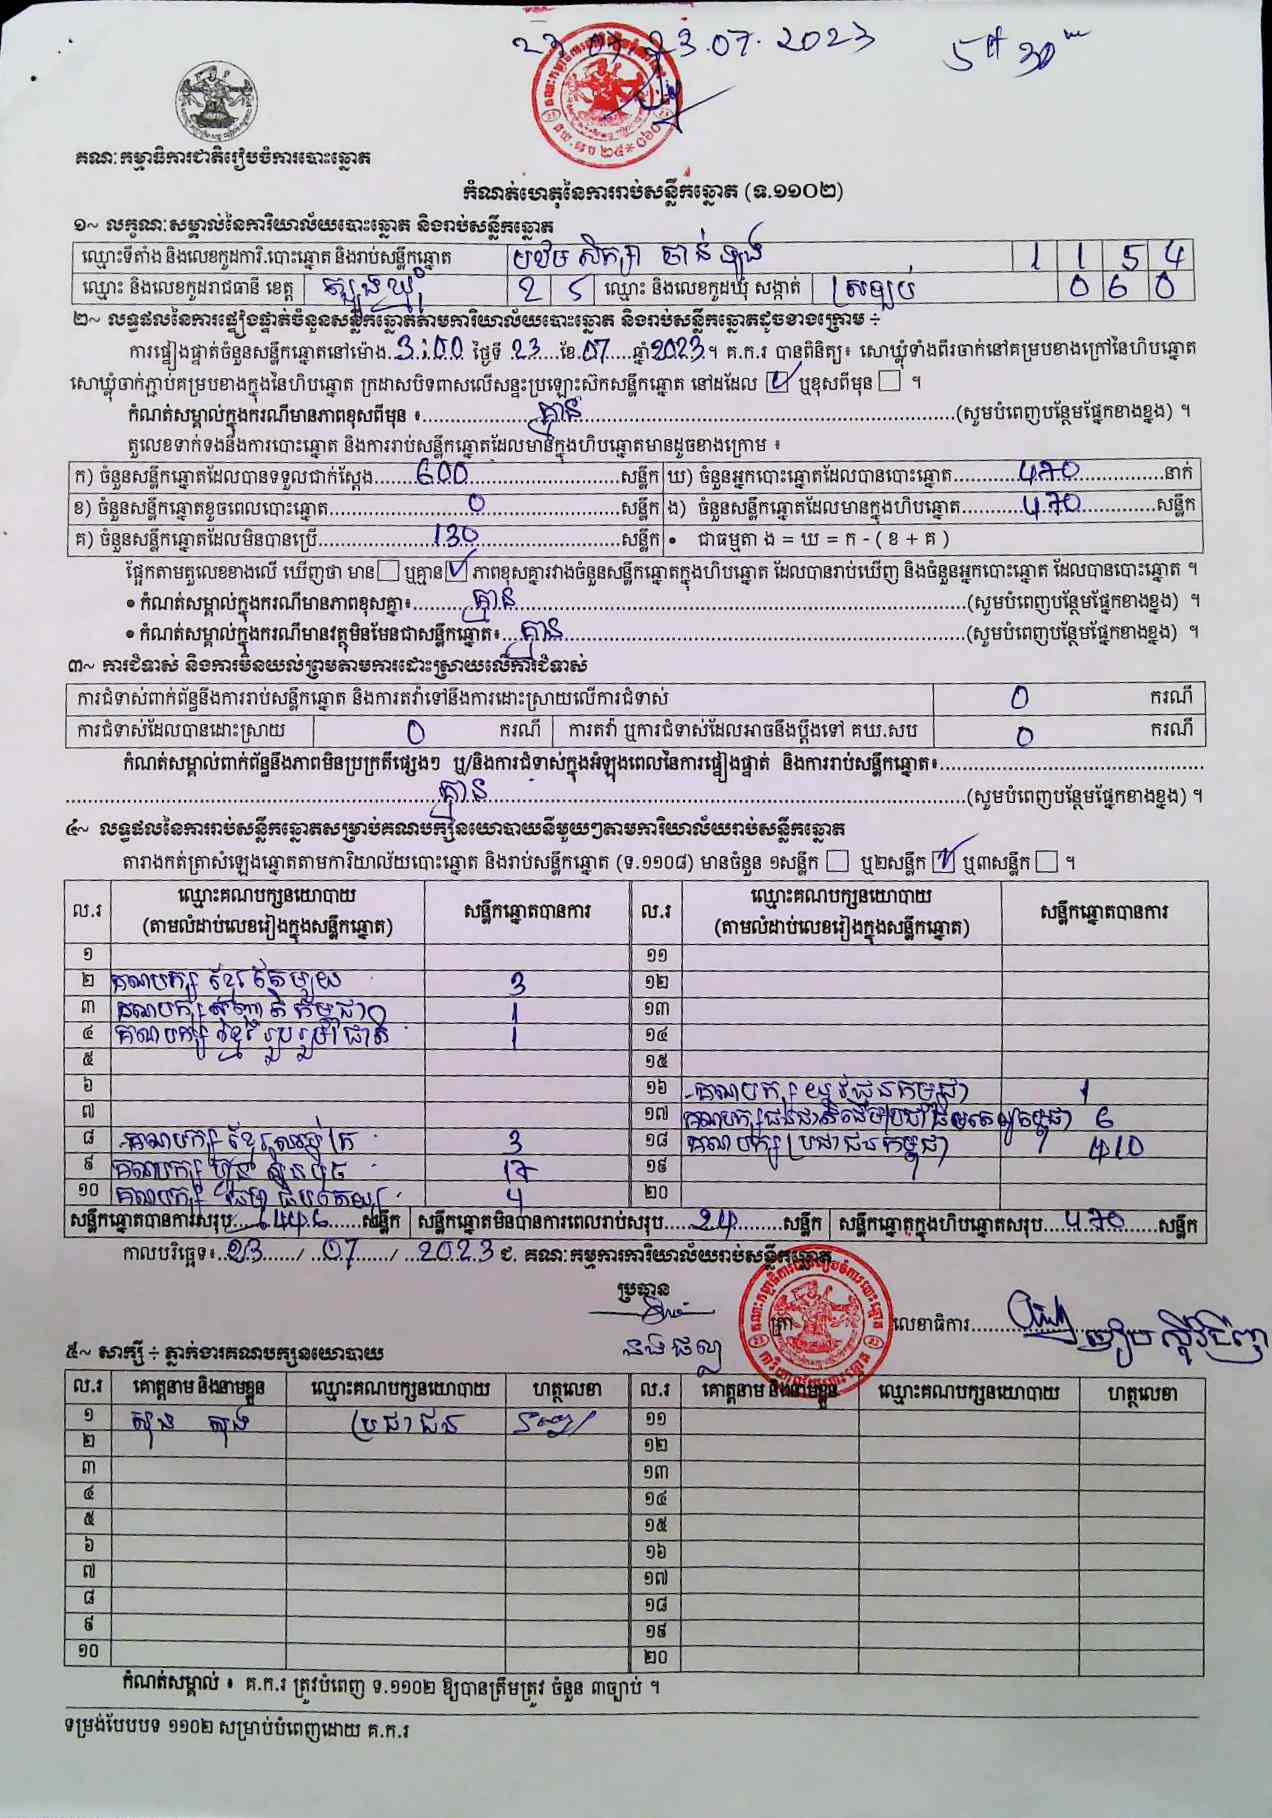 23.07.2023
គណៈកម្មាធិការជាតិរៀបចំការបោះឆ្នោត
កំណត់ហេតុនៃការរាប់សន្លឹកឆ្នោត (ទ.១១០២)
១~ លក្ខណៈសម្គាល់នៃការិយាល័យបោះឆ្នោត និងរាប់សន្លឹកឆ្នោត
ឈ្មោះទីតាំង និងលេខកូដការិ.បោះឆ្នោត និងរាប់សន្លឹកឆ្នោត បឋម សិក្សា ចាន់ 1 1 5 4
ឈ្មោះ និងលេខកូដរាជធានី ខេត្ត ត្បូងឃ្មុំ 2 5 ឈ្មោះ និងលេខកូដឃុំ សង្កាត់ ស្រឡប់ 0 6 0
២~ លទ្ធផលនៃការផ្ទៀងផ្ទាត់ចំនួនសន្លឹកឆ្នោតតាមការិយាល័យបោះឆ្នោត និងរាប់សន្លឹកឆ្នោតដូចខាងក្រោម ÷
ការផ្ទៀងផ្ទាត់ចំនួនសន្លឹកឆ្នោតនៅម៉ោង 3:00 ថ្ងៃទី 23 ខែ 07 ឆ្នាំ 2023។ គ.ក.រ បានពិនិត្យ៖ សោឃ្លុំទាំងពីរចាក់នៅគម្របខាងក្រៅនៃហិបឆ្នោត
សោឃ្លុំចាក់ភ្ជាប់គម្របខាងក្នុងនៃហិបឆ្នោត ក្រដាសបិទពាសលើសន្ទះប្រឡោះស៊កសន្លឹកឆ្នោត នៅដដែល ☑ ឬខុសពីមុន ☐ ។
កំណត់សម្គាល់ក្នុងករណីមានភាពខុសពីមុន ៖ គ្មាន (សូមបំពេញបន្ថែមផ្នែកខាងខ្នង) ។
តួលេខទាក់ទងនឹងការបោះឆ្នោត និងការរាប់សន្លឹកឆ្នោតដែលមានក្នុងហិបឆ្នោតមានដូចខាងក្រោម ៖
ក) ចំនួនសន្លឹកឆ្នោតដែលបានទទួលជាក់ស្តែង 600 សន្លឹក ឃ) ចំនួនអ្នកបោះឆ្នោតដែលបានបោះឆ្នោត 470 នាក់
ខ) ចំនួនសន្លឹកឆ្នោតខូចពេលបោះឆ្នោត 0 សន្លឹក ង) ចំនួនសន្លឹកឆ្នោតដែលមានក្នុងហិបឆ្នោត 470 សន្លឹក
គ) ចំនួនសន្លឹកឆ្នោតដែលមិនបានប្រើ 130 សន្លឹក • ជាធម្មតា ង = ឃ = ក - ( ខ + គ )
ផ្អែកតាមតួលេខខាងលើ ឃើញថា មាន ☐ ឬគ្មាន ☑ ភាពខុសគ្នារវាងចំនួនសន្លឹកឆ្នោតក្នុងហិបឆ្នោត ដែលបានរាប់ឃើញ និងចំនួនអ្នកបោះឆ្នោត ដែលបានបោះឆ្នោត ។
• កំណត់សម្គាល់ក្នុងករណីមានភាពខុសគ្នា៖ គ្មាន (សូមបំពេញបន្ថែមផ្នែកខាងខ្នង) ។
• កំណត់សម្គាល់ក្នុងករណីមានវត្ថុមិនមែនជាសន្លឹកឆ្នោត៖ គ្មាន (សូមបំពេញបន្ថែមផ្នែកខាងខ្នង) ។
៣~ ការជំទាស់ និងការមិនយល់ព្រមតាមការដោះស្រាយលើការជំទាស់
ការជំទាស់ពាក់ព័ន្ធនឹងការរាប់សន្លឹកឆ្នោត និងការតវ៉ាទៅនឹងការដោះស្រាយលើការជំទាស់ 0 ករណី
ការជំទាស់ដែលបានដោះស្រាយ 0 ករណី ការតវ៉ា ឬការជំទាស់ដែលអាចនឹងប្តឹងទៅ គឃ.សប 0 ករណី
កំណត់សម្គាល់ពាក់ព័ន្ធនឹងភាពមិនប្រក្រតីផ្សេងៗ ឬ/និងការជំទាស់ក្នុងអំឡុងពេលនៃការផ្ទៀងផ្ទាត់ និងការរាប់សន្លឹកឆ្នោត៖
គ្មាន (សូមបំពេញបន្ថែមផ្នែកខាងខ្នង) ។
៤~ លទ្ធផលនៃការរាប់សន្លឹកឆ្នោតសម្រាប់គណបក្សនយោបាយនីមួយៗតាមការិយាល័យរាប់សន្លឹកឆ្នោត
តារាងកត់ត្រាសំឡេងឆ្នោតតាមការិយាល័យបោះឆ្នោត និងរាប់សន្លឹកឆ្នោត (ទ.១១០៨) មានចំនួន ១សន្លឹក ☐ ឬ២សន្លឹក ☑ ឬ៣សន្លឹក ☐ ។
ល.រ ឈ្មោះគណបក្សនយោបាយ (តាមលំដាប់លេខរៀងក្នុងសន្លឹកឆ្នោត) សន្លឹកឆ្នោតបានការ ល.រ ឈ្មោះគណបក្សនយោបាយ (តាមលំដាប់លេខរៀងក្នុងសន្លឹកឆ្នោត) សន្លឹកឆ្នោតបានការ
១ ១១
២ គណបក្ស ខ្មែរតែមួយ 3 ១២
៣ គណបក្ស សញ្ជាតិកម្ពុជា 1 ១៣
៤ គណបក្ស ខ្មែររួបរួមជាតិ 1 ១៤
៥ ១៥
៦ ១៦ គណបក្ស យុវជនកម្ពុជា 1
៧ ១៧ គណបក្សជនជាតិដើមប្រជាធិបតេយ្យកម្ពុជា 6
៨ គណបក្ស ខ្មែរ 3 ១៨ គណបក្ស ប្រជាជនកម្ពុជា 410
៩ គណបក្ស ហ៊្វុនស៊ិនប៉ិច 17 ១៩
១០ គណបក្ស 4 ២០
សន្លឹកឆ្នោតបានការសរុប 446 សន្លឹក សន្លឹកឆ្នោតមិនបានការពេលរាប់សរុប 24 សន្លឹក សន្លឹកឆ្នោតក្នុងហិបឆ្នោតសរុប 470 សន្លឹក
កាលបរិច្ឆេទ៖ 23 / 07 / 2023 ជ. គណៈកម្មការការិយាល័យរាប់សន្លឹកឆ្នោត
ប្រធាន
ត្រា លេខាធិការ
៥~ សាក្សី ÷ ភ្នាក់ងារគណបក្សនយោបាយ
ល.រ គោត្តនាម និងនាមខ្លួន ឈ្មោះគណបក្សនយោបាយ ហត្ថលេខា ល.រ គោត្តនាម និងនាមខ្លួន ឈ្មោះគណបក្សនយោបាយ ហត្ថលេខា
១ ប្រជាជន ១១
២ ១២
៣ ១៣
៤ ១៤
៥ ១៥
៦ ១៦
៧ ១៧
៨ ១៨
៩ ១៩
១០ ២០
កំណត់សម្គាល់ ៖ គ.ក.រ ត្រូវបំពេញ ទ.១១០២ ឱ្យបានត្រឹមត្រូវ ចំនួន ៣ច្បាប់ ។
ទម្រង់បែបបទ ១១០២ សម្រាប់បំពេញដោយ គ.ក.រ